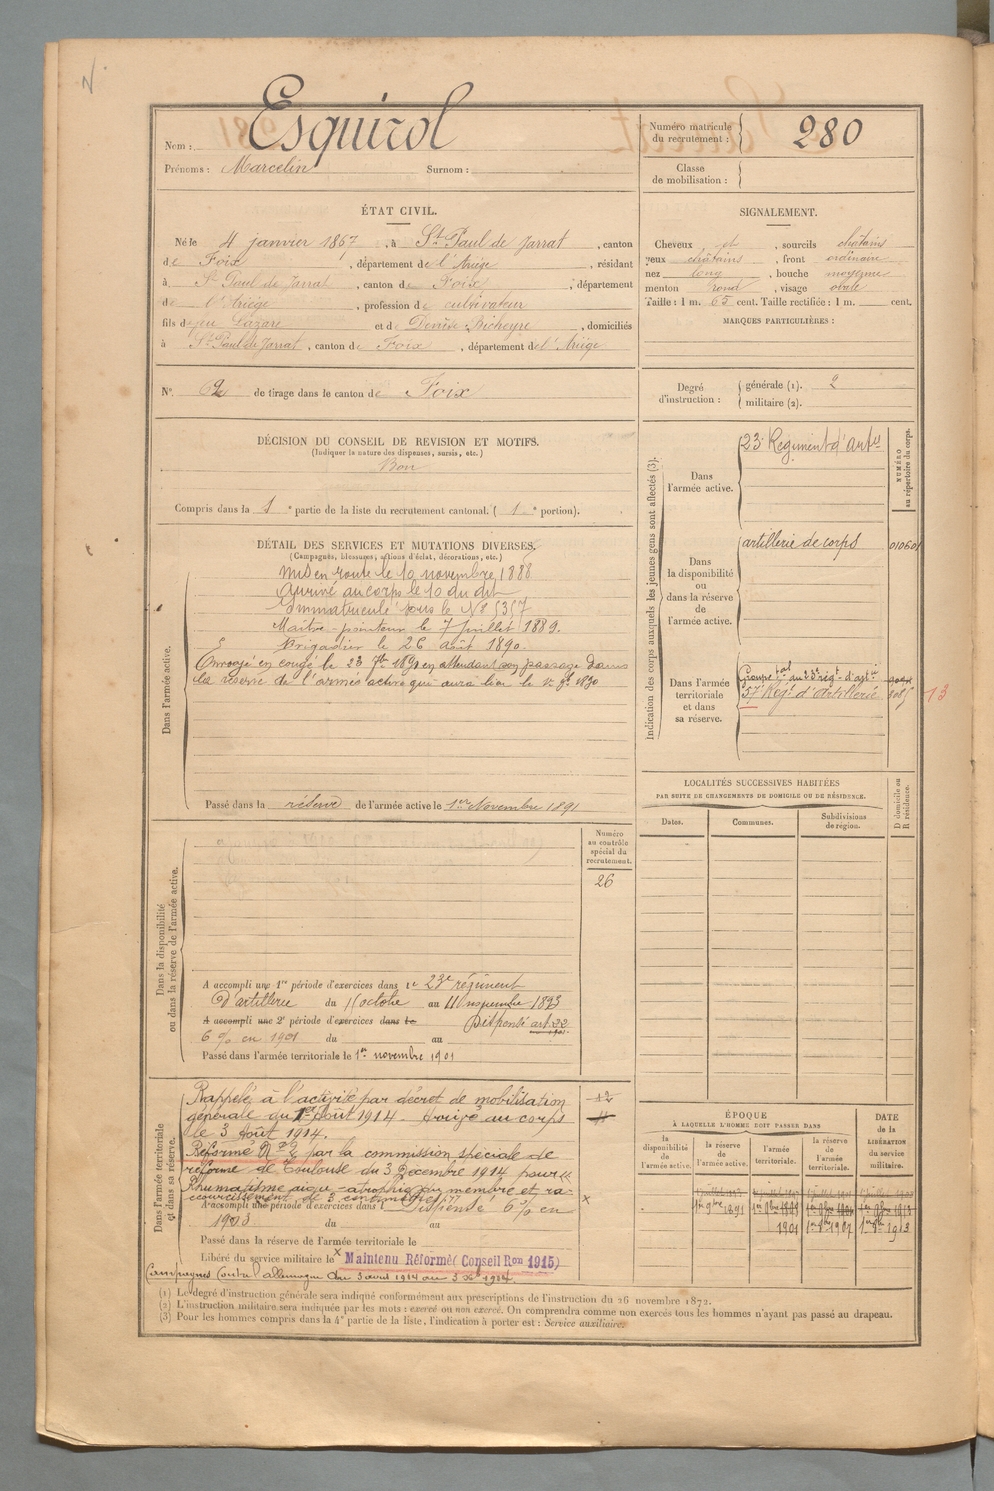 N
Nom : Esquirol
Prénoms : Marcelin Surnom :
Numéro matricule du recrutement : 280
Classe de mobilisation :
ÉTAT CIVIL.
Né le 4 janvier 1867, à St Paul de Jarrat, canton
de Foix, département de l'Ariège, résidant
à St Paul de Jarrat, canton de Foix, département
de l'Ariège, profession de cultivateur
fils de feu Lazare et de Denise Richeyre, domiciliés
à St Paul de Jarrat, canton de Foix, département de l'Ariège
N° 62 de tirage dans le canton de Foix
SIGNALEMENT.
Cheveux et, sourcils châtains
yeux châtains, front ordinaire
nez long, bouche moyenne
menton rond, visage ovale
Taille : 1 m. 65 cent. Taille rectifiée : 1 m. cent.
MARQUES PARTICULIÈRES :
Degré d'instruction : générale (1). 2
militaire (2).
DÉCISION DU CONSEIL DE REVISION ET MOTIFS.
(Indiquer la nature des dispenses, sursis, etc.)
Bon
Compris dans la 1e partie de la liste du recrutement cantonal. (1e portion).
DÉTAIL DES SERVICES ET MUTATIONS DIVERSES.
(Campagnes, blessures, actions d'éclat, décorations, etc.)
Dans l'armée active.
Mis en route le 10 novembre 1888
Arrivé au corps le 10 du dit
Immatriculé sous le N° 5357
Maître-pointeur le 7 Juillet 1889.
Brigadier le 26 août 1890.
Envoyé en congé le 23 7bre 1890 en attendant son passage dans
la réserve de l'armée active qui aura lieu le
Passé dans la réserve de l'armée active le 1er Novembre 1891
Indication des corps auxquels les jeunes gens sont affectés (3).
NUMÉRO au répertoire du corps.
Dans l'armée active.
23e Régiment d'artie
Dans la disponibilité ou dans la réserve de l'armée active.
artillerie de corps
010601
Dans l'armée territoriale et dans sa réserve.
Groupe tal du 23e rég.t d'artie
57 Régt d'Artillerie
3085
13
LOCALITÉS SUCCESSIVES HABITÉES
PAR SUITE DE CHANGEMENTS DE DOMICILE OU DE RÉSIDENCE.
Dates. Communes. Subdivisions de région. D domicile ou R résidence.
Dans la disponibilité ou dans la réserve de l'armée active.
Numéro au contrôle spécial du recrutement.
26
A accompli une 1re période d'exercices dans le 23e régiment
d'artillerie du octobre au 11 novembre 1893
A accompli une 2e période d'exercices dans le Dispensé art. 33
6 % en 1901 du au
Passé dans l'armée territoriale le 1er novembre 1901
Dans l'armée territoriale et dans sa réserve.
Rappelé à l'activité par décret de mobilisation
générale du 1er Août 1914. Arrivé au corps
le 3 Août 1914.
12
Réformé N° 2 par la commission spéciale de
réforme de Toulouse du 3 Décembre 1914 pour «
Rhumatisme aigu - atrophie du membre et ra-
courcissement de 3 centimètres »
A accompli une période d'exercices dans Dispensé 6 % en
1903 du au
Passé dans la réserve de l'armée territoriale le
Libéré du service militaire le x Maintenu Réformé (Conseil Ron 1915)
Campagnes Contre l'Allemagne du 3 août 1914 au 3 Xbre 1914.
ÉPOQUE
À LAQUELLE L'HOMME DOIT PASSER DANS
la disponibilité de l'armée active. la réserve de l'armée active. l'armée territoriale. la réserve de l'armée territoriale.
DATE de la LIBÉRATION DU service militaire.
1er 9bre 1891
1901
1907
1913
(1) Le degré d'instruction générale sera indiqué conformément aux prescriptions de l'instruction du 26 novembre 1872.
(2) L'instruction militaire sera indiquée par les mots : exercé ou non exercé. On comprendra comme non exercés tous les hommes n'ayant pas passé au drapeau.
(3) Pour les hommes compris dans la 4e partie de la liste, l'indication à porter est : Service auxiliaire.